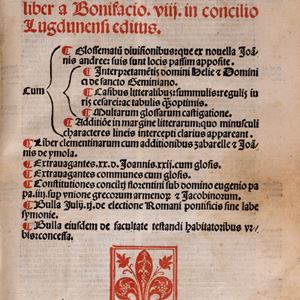 liber a Bonifacio. viij. in concilio
Lugdunensi editus.
¶ Glossematū diuisionibus: que ex nouella Joā
nis andree: suis sunt locis passim apposite.
¶ Interpretamētis domini Helie & Domini
ci de sancto Geminiano.
Cum
¶ Casibus litteralibus: summulis: regulis iu
ris cesareis: ac tabulis q̄optimis.
¶ Multarum glossarum castigatione.
¶ Additiōe in margine litterarum: quo minusculi
characteres lineis intercepti clarius appareant.
¶ Liber clementinarum cum additionibus zabarelle & Joā
nis de ymola.
¶ Extrauagantes .xx. D. Joannis .xxij. cum glosis.
¶ Extrauagantes communes cum glosis.
¶ Constitutiones concilij florentini sub domino eugenio pa
pa .iiij. sup vnione grecorum armenoꝝ & Jacobinorum.
¶ Bulla Julij .ij. de electione Romani pontificis sine labe
symonie.
¶ Bulla eiusdem de facultate testandi habitatoribus vr
bis concessa.